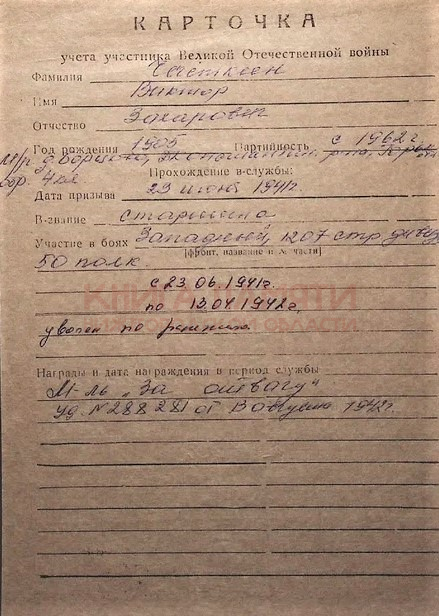 КАРТОЧКА
учета участника Великой Отечественной войны
Фамилия
Имя Виктор
Отчество Захарович
Год рождения 1905 Партийность с 1962 г
М/р д. Борщовка,
обр. 4 кл
Прохождение в-службы:
Дата призыва 23 июня 1941г.
В-звание старшина
Участие в боях Западный, 1207 стр. дивиз
[фронт, название и № части]
50 полк
с 23.06.1941г.
по 13.04.1942г.
уволен по ранению
КНИГА ПАМЯТИ
ОБЛАСТИ
Награды и дата награждения в период службы
М-ль "За отвагу"
Уд. №288281 от августа 1942г.